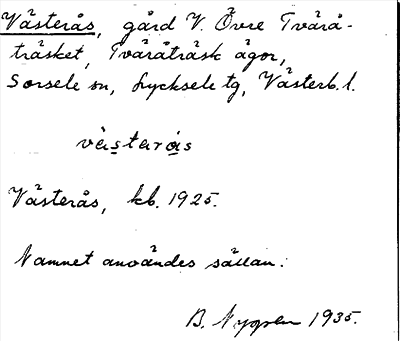 Västerås, gård V. Övre Tvärå-
träsket, Tväråträsk ägor,
Sorsele sn, Lycksele tg, Västerb. l.
västerås
Västerås, kb. 1925.
Namnet användes sällan.
B. Nygren 1935.